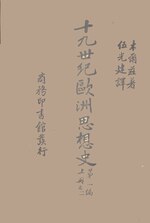 木爾茲著
伍光建譯
十九世紀歐洲思想史
第一編
上册之一
商務印書館發行